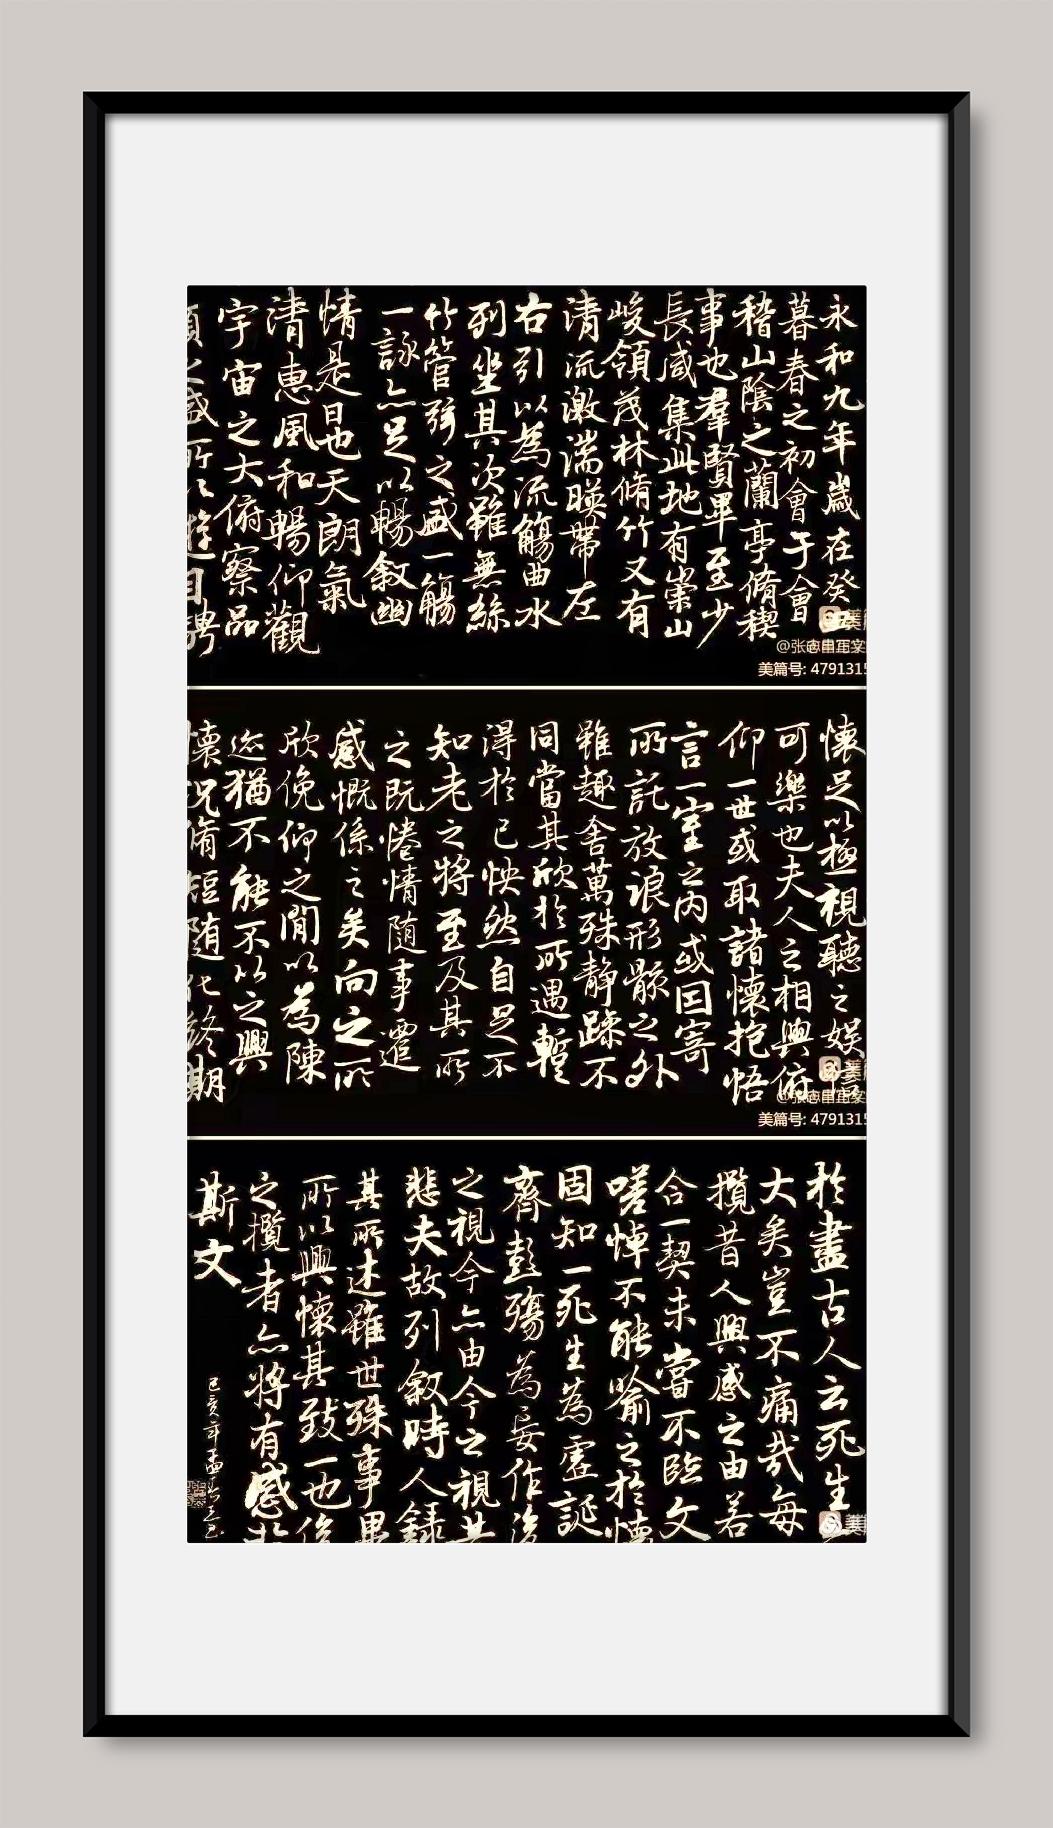 永和九年歲在癸
暮春之初會于會
稽山陰之蘭亭脩稧
事也羣賢畢至少
長咸集此地有崇山
峻領茂林脩竹又有
清流激湍暎帶左
右引以為流觴曲水
列坐其次雖無絲
竹管弦之盛一觴
一詠亦足以暢敘幽
情是日也天朗氣
清惠風和暢仰觀
宇宙之大俯察品
類之盛所以遊目騁
美篇号: 4791315
懷足以極視聽之娛
可樂也夫人之相與俯
仰一世或取諸懷抱悟
言一室之内或因寄
所託放浪形骸之外
雖趣舍萬殊静躁不
同當其欣於所遇蹔
得於己怏然自足不
知老之將至及其所
之既惓情隨事遷
感慨係之矣向之所
欣俛仰之閒以為陳
迹猶不能不以之興
懷況脩短隨化終期
美篇号: 4791315
於盡古人云死生
大矣豈不痛哉每
攬昔人興感之由若
合一契未嘗不臨文
嗟悼不能喻之於懷
固知一死生為虛誕
齊彭殤為妄作後
之視今亦由今之視昔
悲夫故列敘時人錄
其所述雖世殊事異
所以興懷其致一也後
之攬者亦將有感於
斯文
己亥年孟